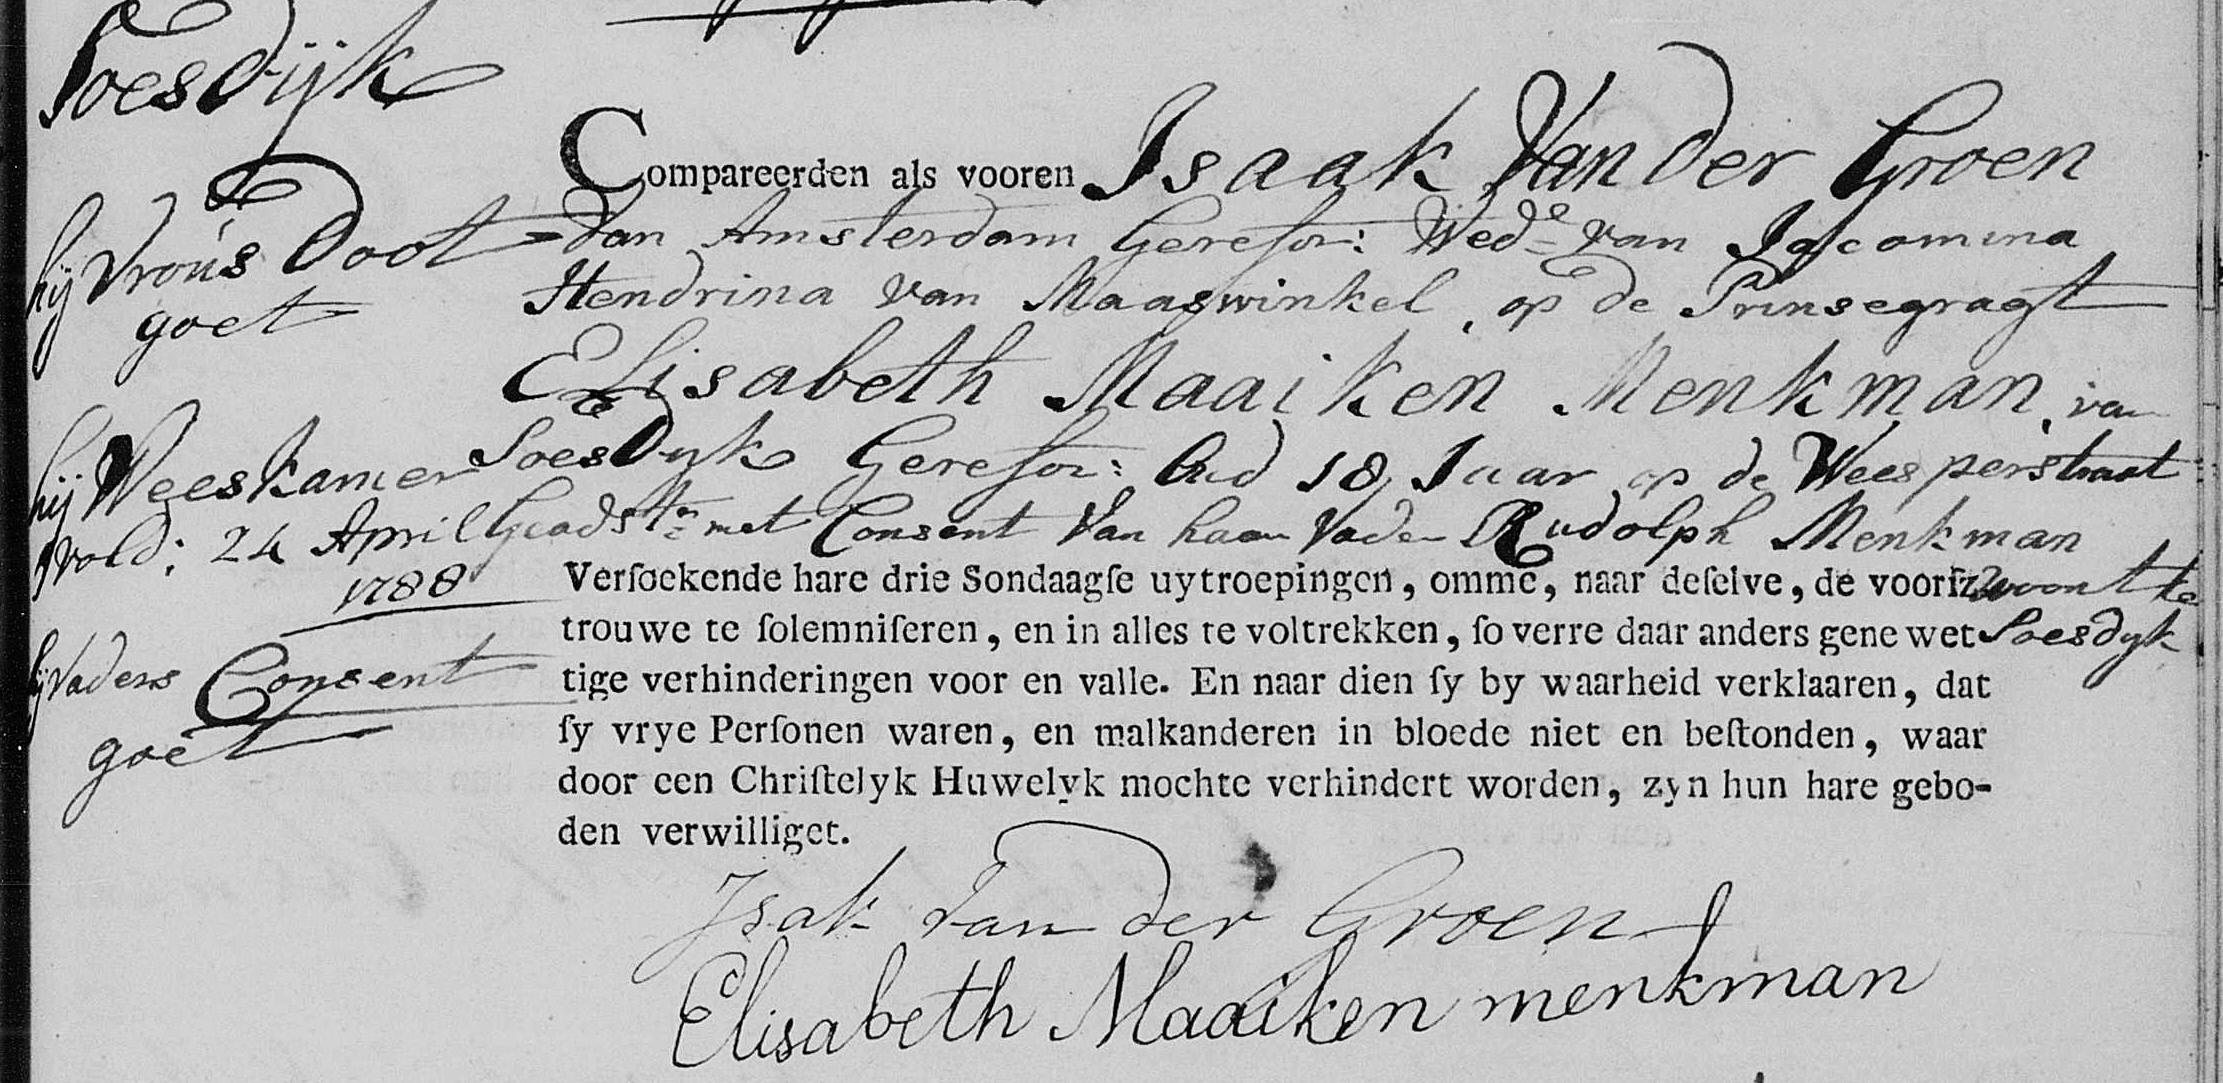 Soesdijk
hij Vrous Doot
goet
hij Weeskamer
vold: 24 April
1788
hij Vaders Consent
goet
Compareerden als vooren Isaak Van der Groen
Van Amsterdam Gerefor: Wed.e van Jacomina
Hendrina van Maaswinkel, op de Prinsegragt
Elisabeth Maaiken Menkman, van
Soesdyk Gerefor: Oud 18 Jaar op de Weesperstraat
met Consent Van haar Vader Rudolph Menkman
Verſoekende hare drie Sondaagſe uytroepingen, omme, naar deſelve, de voorſz woont te
trouwe te ſolemniſeren, en in alles te voltrekken, ſo verre daar anders gene wet Soesdyk
tige verhinderingen voor en valle. En naar dien ſy by waarheid verklaaren, dat
ſy vrye Perſonen waren, en malkanderen in bloede niet en beſtonden, waar
door een Chriſtelyk Huwelyk mochte verhindert worden, zyn hun hare gebo-
den verwilliget.
Isak van der Groen
Elisabeth Maaiken menkman